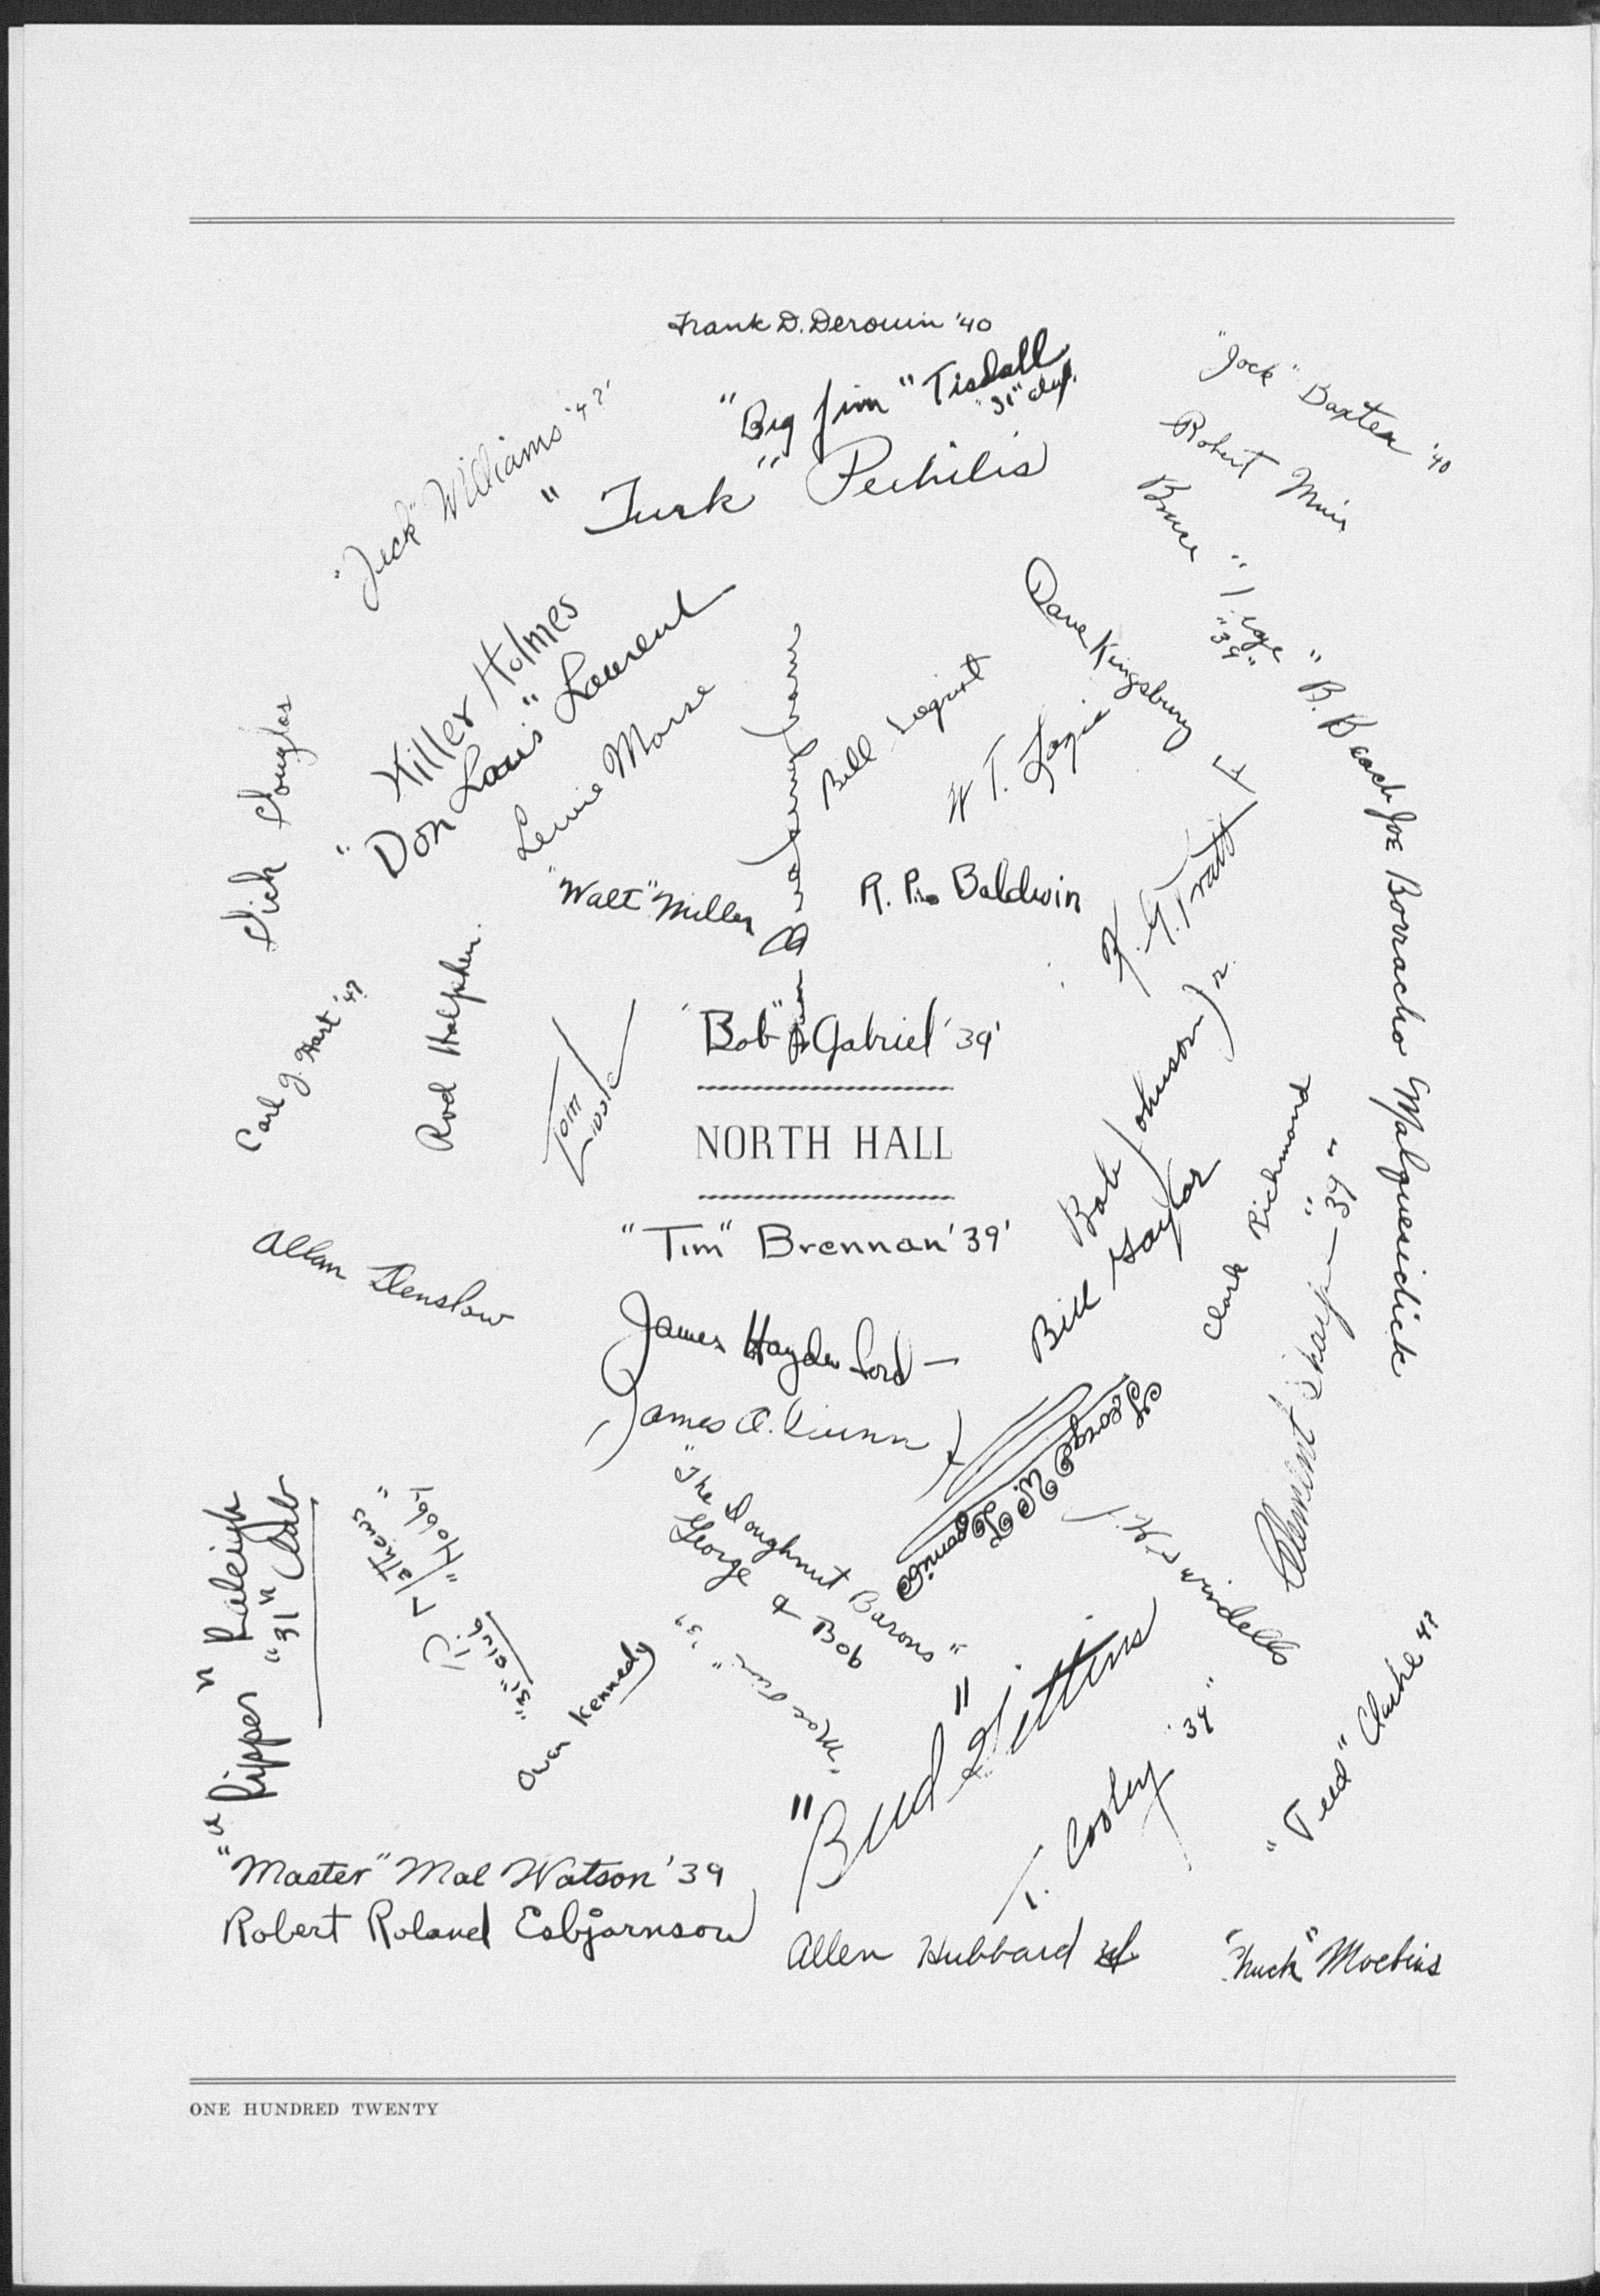 Frank D. Derouin '40
"Big Jim" Tisdall
"31" club.
"Jock" Baxter '40
"Jack" Williams '4?'
"Turk" Pechilis
Robert Muir
Bruce "Tige" B. Beach
"39"
Joe Borracho Malquesidick
Killer Holmes
"Don Louis" Laurent
Lennie Morse
Dave Kingsbury
Bill
W. T.
Dick Douglas
"Walt" Miller
R. P. Baldwin
K. G. Pratt
Carl J. Hart '4?
Rod Halphen.
Tom
"Bob" Gabriel '39'
Bob Johnson Jr.
NORTH HALL
"Tim" Brennan '39'
Bill Gaylor
Clark Richmond
Clement Sharpe "39"
Allan Denslow
James Hayden Ford
James A. Quinn
George N. Tonis
"The Doughnut Barons"
George & Bob
H. Swindells
"Ripper" Raleigh
"31" Club
"Hobby"
"31" club
Owen Kennedy
"Bud" Gittins
T. Cooley '39"
"Teed" Clarke 4?
"Master" Mal Watson '39
Robert Roland Esbjornson
Allen Hubbard
"Chuck" Moebius
ONE HUNDRED TWENTY